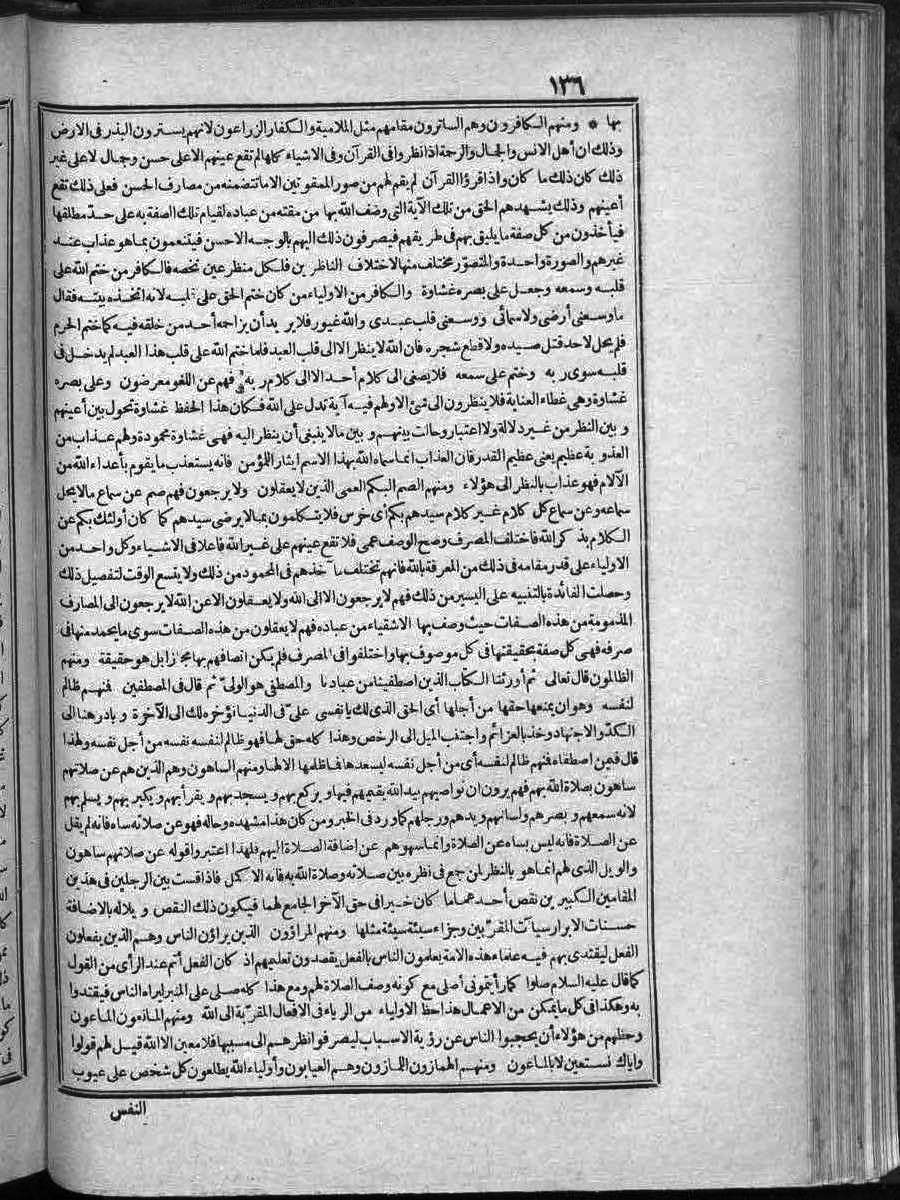 ١٣٦
بها * ومنهم الكافرون وهم الساترون مقامهم مثل الملامية والكفار الزراعون لانهم يسترون البذر فى الارض
وذلك ان أهل الانس والجمال والرحمة اذا نظروا فى القرآن وفى الاشياء كلها لم تقع عينهم الا على حسن وجمال لا على غير
ذلك كان ذلك ما كان واذا قرؤا القرآن لم يقم لهم من صور الممقوتين الا ما تتضمنه من مصارف الحسن فعلى ذلك تقع
أعينهم وذلك يشهدهم الحق من تلك الآية التى وصف الله بها من مقته من عباده لقيام تلك الصفة به على حدّ مطلقها
فيأخذون من كل صفة ما يليق بهم فى طريقهم فيصرفون ذلك اليهم بالوجه الاحسن فيتنعمون بما هو عذاب عند
غيرهم والصورة واحدة والمتصوّر مختلف منها لاختلاف الناظرين فلكل منظر عين تخصه فالكافر من ختم الله على
قلبه وسمعه وجعل على بصره غشاوة والكافر من الاولياء من كان ختم الحق على قلبه لانه اتخذه بيته فقال
ما وسعنى أرضى ولا سمائى ووسعنى قلب عبدى والله غيور فلا يريد أن يزاحمه أحد من خلقه فيه كما ختم الحرم
فلم يحل لاحد قتل صيده ولا قطع شجره فان الله لا ينظر الا الى قلب العبد فلما ختم الله على قلب هذا العبد لم يدخل فى
قلبه سوى ربه وختم على سمعه فلا يصغى الى كلام أحد الا الى كلام ربه فهم عن اللغو معرضون وعلى بصره
غشاوة وهى غطاء العناية فلا ينظرون الى شئ الا ولهم فيه آية تدل على الله فكان هذا الحفظ غشاوة تحول بين أعينهم
وبين النظر من غير دلالة ولا اعتبار وحالت بينهم وبين ما لا ينبغى أن ينظر اليه فهى غشاوة محمودة ولهم عذاب من
العذوبة عظيم يعنى عظيم القدر فان العذاب انما سماه الله بهذا الاسم ايثار اللمؤمن فانه يستعذب ما يقوم بأعداء الله من
الآلام فهو عذاب بالنظر الى هؤلاء ومنهم الصم البكم العمى الذين لا يعقلون ولا يرجعون فهم صم عن سماع ما لا يحل
سماعه وعن سماع كل كلام غير كلام سيدهم بكم أى خرس فلا يتكلمون بما لا يرضى سيدهم كما كان أولئك بكم عن
الكلام بذكر الله فاختلف المصرف وصح الوصف عمى فلا تقع عينهم على غير الله فاعلا فى الاشياء وكل واحد من
الاولياء على قدر مقامه فى ذلك من المعرفة بالله فانهم تختلف مآخذهم فى المحمود من ذلك ولا يتسع الوقت لتفصيل ذلك
وحصلت الفائدة بالتنبيه على اليسير من ذلك فهم لا يرجعون الا الى الله ولا يعقلون الا عن الله لا يرجعون الى المصارف
المذمومة من هذه الصفات حيث وصف بها الاشقياء من عباده فهم لا يعقلون من هذه الصفات سوى ما يحمد منها فى
صرفه فهى كل صفة بحقيقتها فى كل موصوف بها واختلفوا فى المصرف فلم يكن اتصافهم بها مجازا بل هو حقيقة ومنهم
الظالمون قال تعالى ثم أورثنا الكتاب الذين اصطفينا من عبادنا والمصطفى هو الولىّ ثم قال فى المصطفين فمنهم ظالم
لنفسه وهو ان يمنعها حقها من أجلها أى الحق الذى لك يا نفسى علىّ فى الدنيا نؤخره لك الى الآخرة وبادر هنا الى
الكدّ والاجتهاد وخذ بالعزائم واجتنب الميل الى الرخص وهذا كله حق لها فهو ظالم لنفسه نفسه من أجل نفسه ولهذا
قال فيمن اصطفاه فمنهم ظالم لنفسه أى من أجل نفسه ليسعدها فما ظلمها الا لها ومنهم الساهون وهم الذين هم عن صلاتهم
ساهون بصلاة الله بهم فهم يرون ان نواصيهم بيد الله يقيمهم فيها ويركع بهم ويسجد بهم ويقرأ بهم ويكبر بهم ويسلم بهم
لانه سمعهم وبصرهم ولسانهم ويدهم ورجلهم كما ورد فى الخبر ومن كان هذا مشهده وحاله فهو عن صلاته ساه فانه لم يقل
عن الصلاة فانه ليس بساه عن الصلاة وانما سهوهم عن اضافة الصلاة اليهم فلهذا اعتبروا قوله عن صلاتهم ساهون
والويل الذى لهم انما هو بالنظر لمن جمع فى نظره بين صلاته وصلاة الله به فانه الاكمل فاذا قست بين الرجلين فى هذين
المقامين الكبيرين نقص أحدهما عما كان خيرا فى حق الآخر الجامع لهما فيكون ذلك النقص ويلا له بالاضافة
حسنات الابرار سيآت المقرّبين وجزاء سيئة سيئة مثلها ومنهم المراؤن الذين يراؤن الناس وهم الذين يفعلون
الفعل ليقتدى بهم فيه علماء هذه الامة يعلمون الناس بالفعل يقصدون تعليمهم اذ كان الفعل أتم عند الرأى من القول
كما قال عليه السلام صلوا كما رأيتمونى أصلى مع كونه وصف الصلاة لهم ومع هذا كله صلى على المنبر ليراه الناس فيقتدوا
به وهكذا فى كل ما يمكن من الاعمال هذا حظ الاولياء من الرياء فى الافعال المقرّبة الى الله ومنهم المانعون الماعون
وحظهم من هؤلاء أن يحجبوا الناس عن رؤية الاسباب ليصرفوا نظرهم الى مسببها فلا معين الا الله قيل لهم قولوا
واياك نستعين لا بالماعون ومنهم الهمازون اللمازون وهم العيابون وأولياء الله يطلعون كل شخص على عيوب
النفس